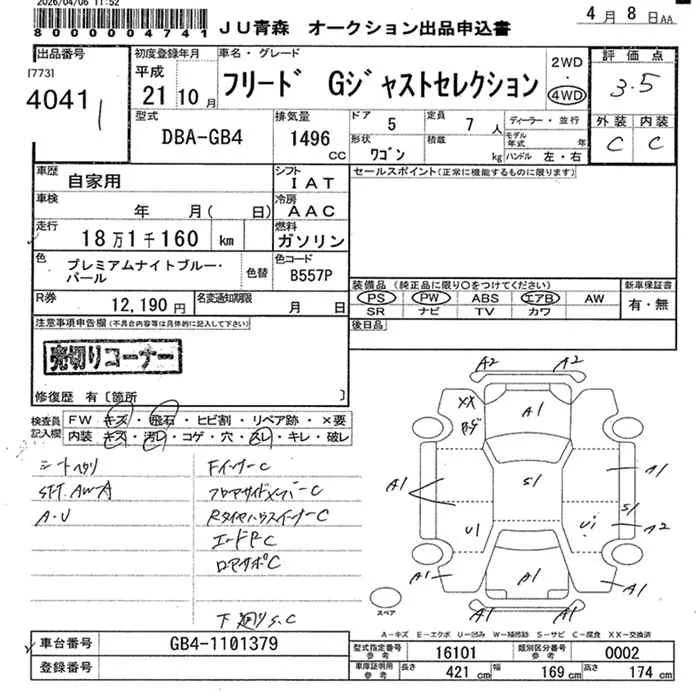 2026/04/06 11:52
8000004741
JU青森 オークション出品申込書
4月8日AA
出品番号
[773]
4041
初度登録年月
平成
21 10月
車名・グレード
フリード Gジャストセレクション
2WD
・
4WD
評価点
3.5
外装 内装
C C
型式
DBA-GB4
排気量
1496
CC
ドア
5
定員
7人
形状
ワゴン
積載
kg
ディーラー・並行
モデル年式 年
ハンドル 左・右
車歴
自家用
シフト
IAT
車検
年 月( 日)
冷房
AAC
走行
18万1千160 km
燃料
ガソリン
色
プレミアムナイトブルー・パール
色替
色コード
B557P
R券
12,190円
名変通知期限
月 日
セールスポイント(正常に機能するものに限ります)
装備品(純正品に限り○をつけてください)
PS PW ABS エアB AW
SR ナビ TV カワ
新車保証書
有・無
後日品
注意事項申告欄(不具合内容等は具体的に記入して下さい)
売切りコーナー
修復歴 有〔箇所 〕
検査員記入欄
FW キズ・飛石・ヒビ割・リペア跡・×要
内装 キズ・汚レ・コゲ・穴・スレ・キレ・破レ
シートヘタリ
SFT.AW-A
A・U
FインナーC
フロアサイドメンバーC
RタイヤハウスインナーC
エンドPC
ロアサポC
下廻りS.C
A2 A2
XX
A1
S1
A1
A1
U1
S1
A2
A1
A1
A1
A1 A1
スペア
A-キズ E-エクボ U-凹み W-補修跡 S-サビ C-腐食 XX-交換済
車台番号
GB4-1101379
登録番号
型式指定番号
参考
16101
類別区分番号
参考
0002
車庫証明用
参考
長さ
421 cm
幅
169 cm
高さ
174 cm